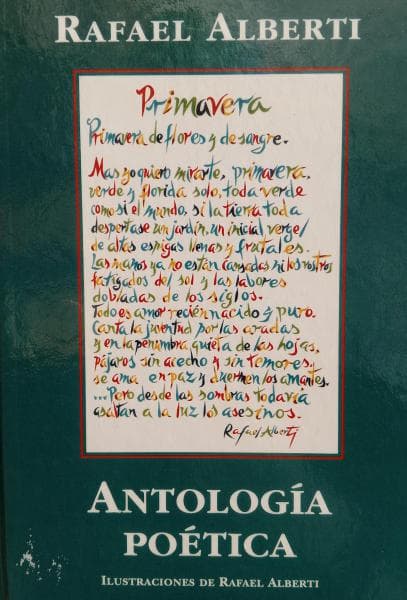 RAFAEL ALBERTI
Primavera
Primavera de flores y de sangre.
Mas yo quiero mirarte, primavera,
verde y florida solo, toda verde
como si el mundo, si la tierra toda
despertase un jardín, un inicial vergel
de altas espigas llenas y frutales.
Las manos ya no están cansadas ni los rostros
fatigados del sol y las labores
dobladas de los siglos.
Todo es amor recién nacido y puro.
Canta la juventud por las aradas
y en la penumbra quieta de las hojas,
pájaros sin acecho y sin temores,
se ama en paz y duermen los amantes.
...Pero desde las sombras todavía
asaltan a la luz los asesinos.
Rafael Alberti
ANTOLOGÍA
POÉTICA
ILUSTRACIONES DE RAFAEL ALBERTI